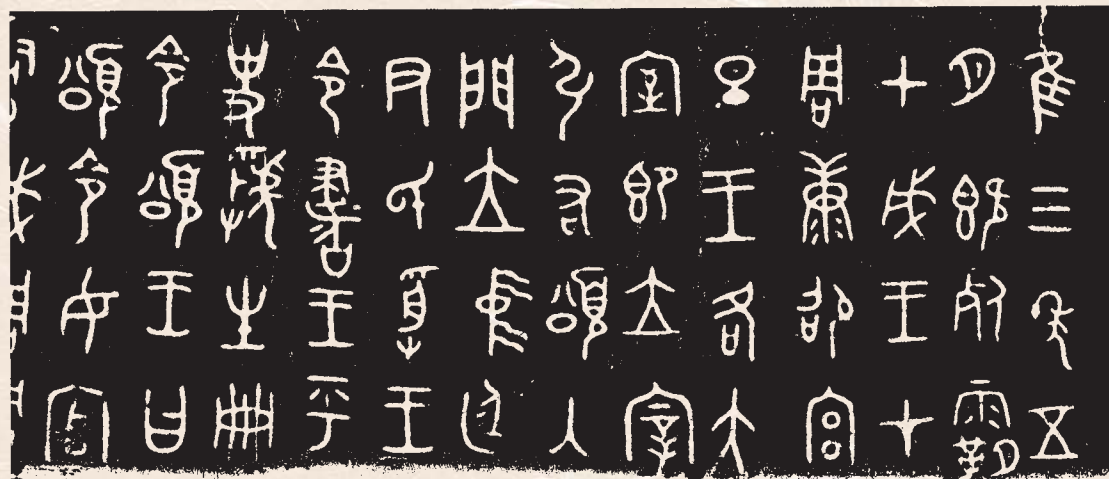 隹三年五
月既死霸
甲戌王才
周康卲宮
旦王各大
室即立宰
引右頌入
門立中廷
尹氏受王
令書王乎
史虢生冊
令頌王曰
頌令女官